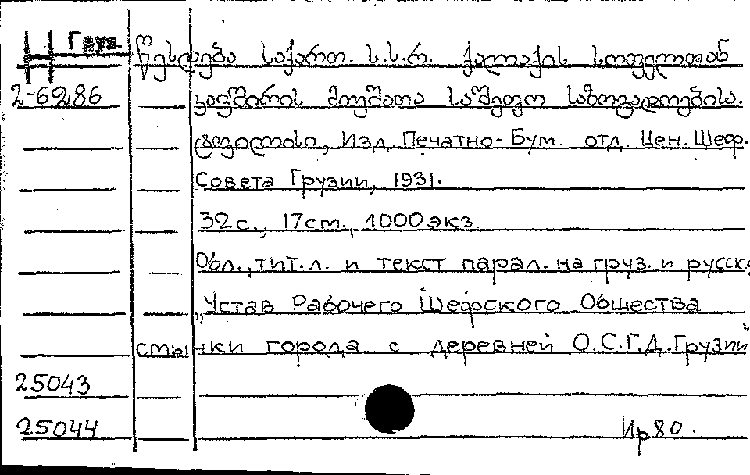 Груз.
წესდება საქართ. ს.ს.რ. ქალაქის სოფელთან
2-69286 კავშირის მუშათა საშეფო საზოგადოებისა.
ტფილისი, Изд. Печатно-Бум. отд. Цен. Шеф.
Совета Грузии, 1931.
32 с., 17 см., 1000 экз.
Обл., тит. л. и текст парал. на груз. и русск.
„Устав Рабочего Шефского Общества
смычки города с деревней О.С.Г.Д. Грузии
25043
25044 Ир80.